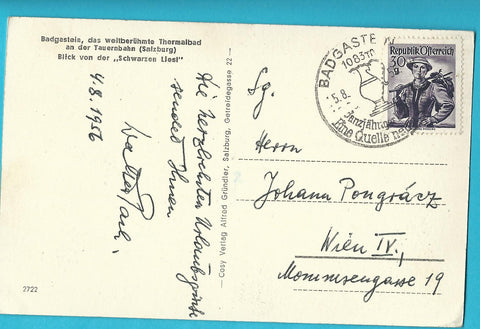 Badgastein, das weltberühmte Thermalbad
an der Tauernbahn (Salzburg)
Blick von der „Schwarzen Liesl"
4.8.1956
Die herzlichsten Urlaubsgrüße
sendet Ihnen
Cosy Verlag Alfred Gründler, Salzburg, Getreidegasse 22
2722
BADGASTEIN
1083m
5.8.
Eine Quelle
Republik Österreich
30
g
Herrn
Johann Pongrácz
Wien IV.,
Mommsengasse 19